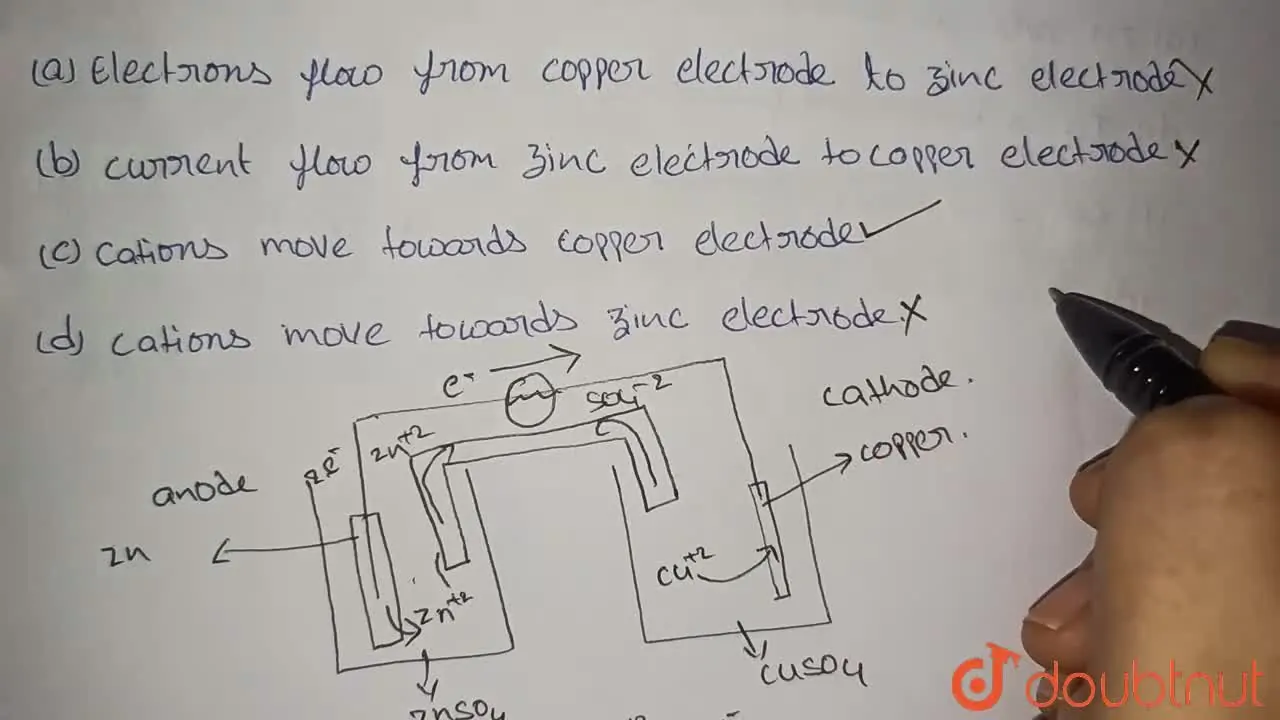 (a) Electrons flow from copper electrode to zinc electrode X
(b) current flow from zinc electrode to copper electrode X
(c) cations move towards copper electrode ✓
(d) cations move towards zinc electrode. X
e-
SO4-2
cathode.
2e-
Zn+2
copper.
anode
Zn
Cu+2
Zn+2
CuSO4
ZnSO4
doubtnut